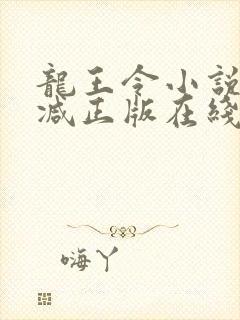 龍王令小說
减正版在綫
嗨丫